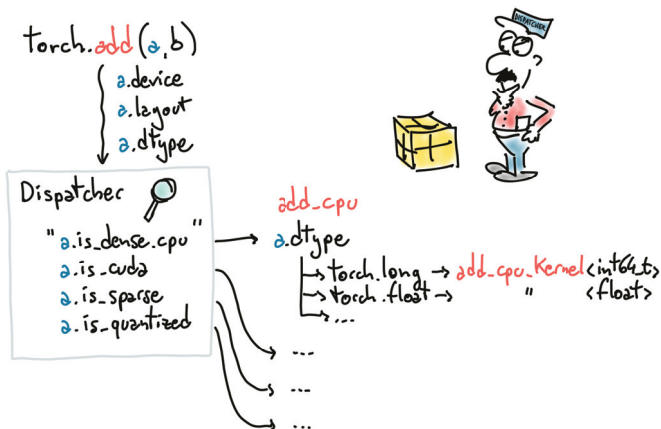 DISPATCHER
torch.add(a,b)
a.device
a.layout
a.dtype
Dispatcher
"a.is_dense.cpu"
a.is_cuda
a.is_sparse
a.is_quantized
add_cpu
a.dtype
torch.long → add_cpu_kernel<int64_t>
torch.float → " <float>
...
...
...
...